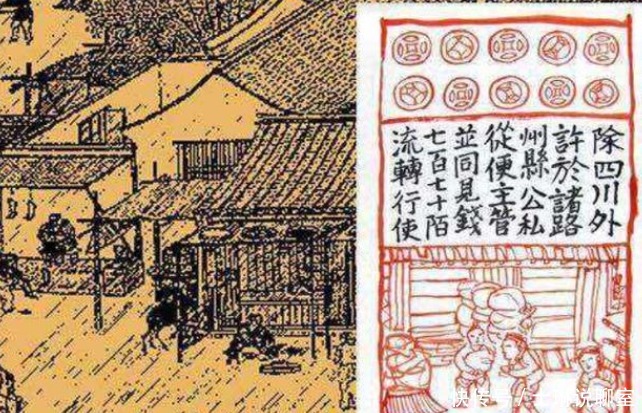 除四川外
許於諸路
州縣公私
從便主管
並同見錢
七百七十陌
流轉行使
快传号
说聊室